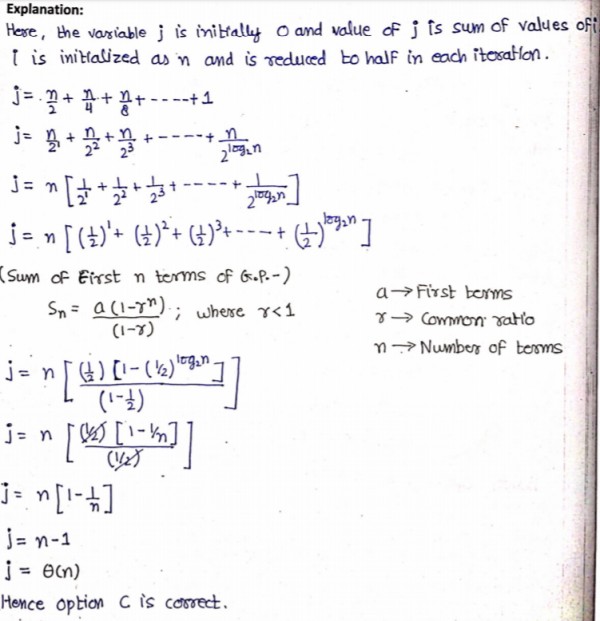 Explanation:
Here, the variable j is initially 0 and value of j is sum of values of i
i is initialized as n and is reduced to half in each iteration.
j = n/2 + n/4 + n/8 + ----+ 1
j = n/2¹ + n/2² + n/2³ + ----+ n/2^(log₂n)
j = n [1/2¹ + 1/2² + 1/2³ + ---- + 1/2^(log₂n)]
j = n [(1/2)¹ + (1/2)² + (1/2)³ + --- + (1/2)^(log₂n)]
(Sum of first n terms of G.P.-)
Sn = a(1-rⁿ)/(1-r) ; where r<1
a → First terms
r → Common ratio
n → Number of terms
j = n [(1/2) [1-(1/2)^(log₂n)] / (1-1/2)]
j = n [(1/2) [1-1/n] / (1/2)]
j = n [1-1/n]
j = n-1
j = θ(n)
Hence option C is correct.